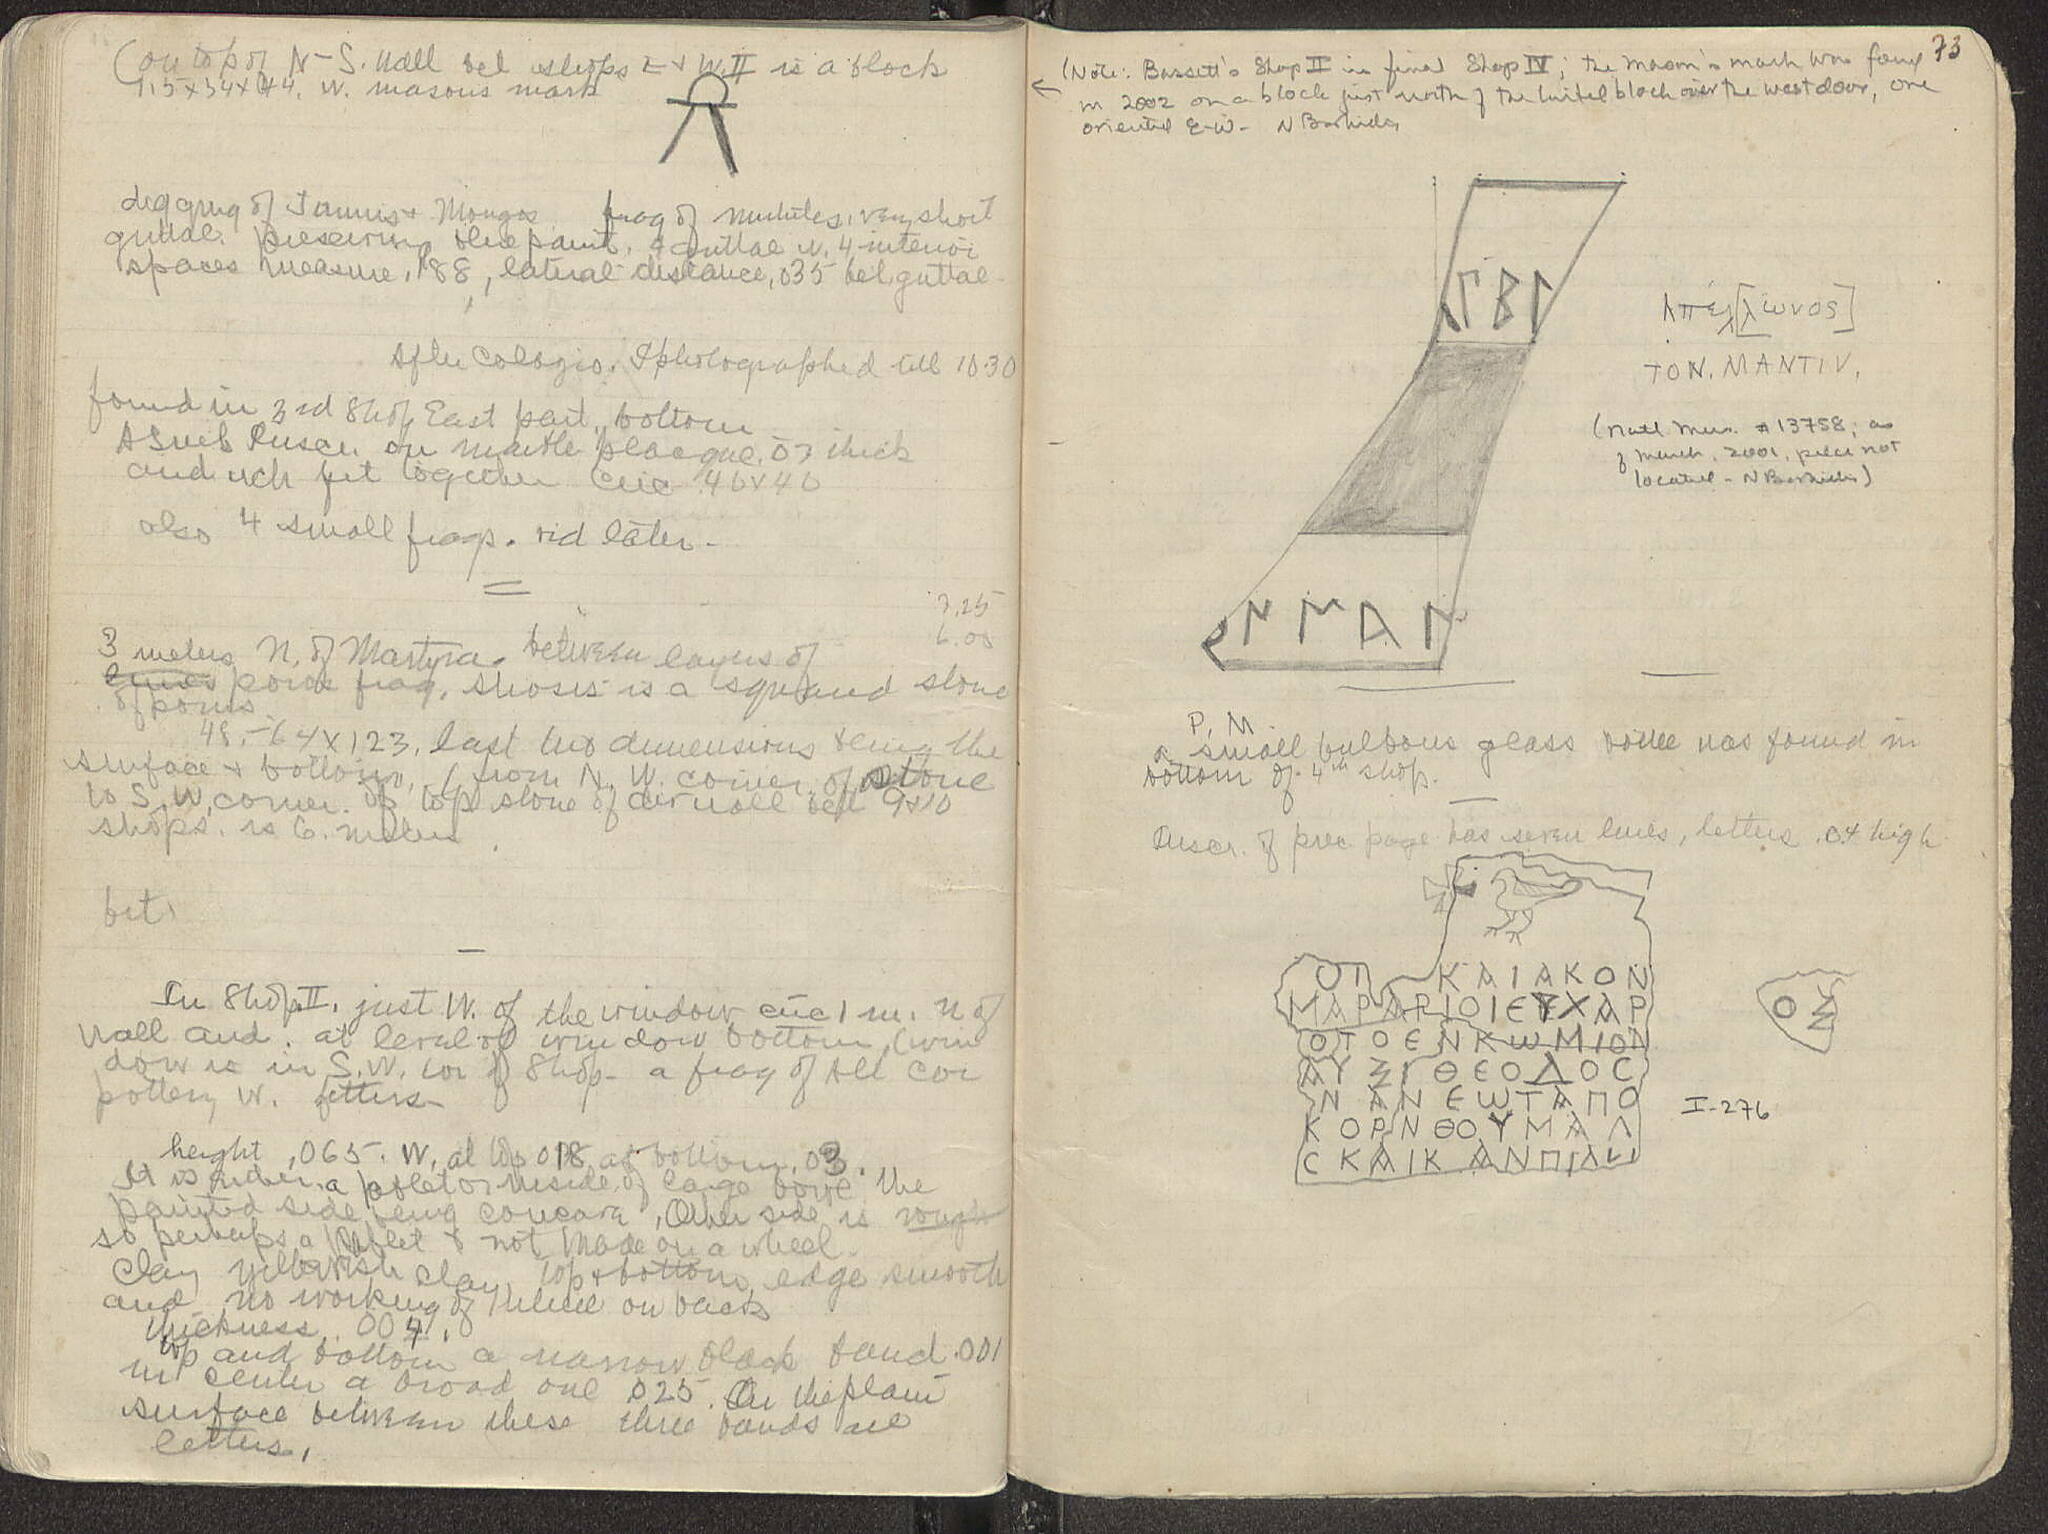 (on top of N-S. Wall bet shops I + W. II is a block
1.5 x 34 x 44. w. masons mark
digging of Iannis + Mongos frag of mutules, very short
guttae. preserving blue paint. 4 guttae w. 4 interior
spaces measure .188, lateral distance .035 bet. guttae.
After Colazio. I photographed till 10.30
found in 3rd Shop East part, bottom
on marble plaque .03 thick
and wch fit together Circ .40 x 40
also 4 small frags. rid later.
7.25
6.00
3 meters N. of Martyra. between layers of
poros frag. is a squared stone
of poros
48.-64 x 123, last two dimensions being the
surface + bottom, (from N. W. corner of stone
to S. W. corner of top stone of wall bet 9 + 10
shops. is 6. meters.
bet.
In Shop II. just W. of the window circ 1 m. N of
Wall and. at level of window bottom, (win
dow is in S.W. cor of Shop - a frag of All Cor
pottery W. letters.
height .065. W. at top 018 at bottom .03.
It is either a or inside of large bowl the
painted side being concave. Other side is rough
so perhaps a + not made on a wheel.
Clay yellowish clay, top + bottom edge smooth
and no working of on back
thickness .004.
top and bottom a narrow black band .001
in center a broad one .025. On the plain
surface between these three bands are
letters.
73
(Note: Bassett's Shop II is final Shop IV; the mason's mark was found
← in 2002 on a block just north of the lintel block over the west door, one
oriented E-W - N Bookidis
Γ Β Γ
Ἀπέλ[λωνος]
ΤΟΝ. ΜΑΝΤΙΝ.
(Natl Mus. #13758; as
of March, 2001, piece not
located - N Bookidis)
P. M
a small bulbous glass bottle was found in
bottom of 4th shop.
Inscr. of prec page has seven lines, letters .04 high
ΟΤ ΚΑΙΑΚΟΝ
ΜΑΡΑΡΙΟΙΕΥΧΑΡ
ΟΣ
ΟΤΟΕΝΚΩΜΙΟΝ
ΑΥΞΙΘΕΟΔΟC
ΝΑΝΕΩΤΑΠΟ
I-276
ΚΟΡΝΘΟΥΜΑΛ
CΚΑΙΚΑΝΠΙΔΙ